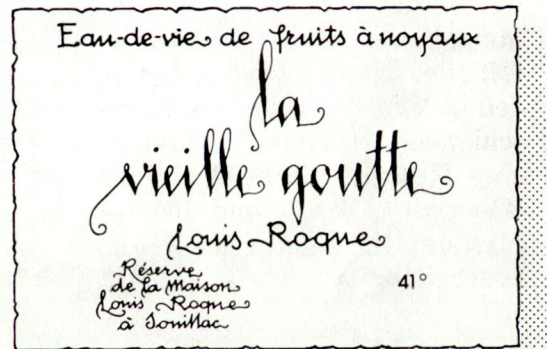 Eau-de-vie de fruits à noyaux
la
vieille goutte
Louis Roque
Réserve
de la Maison
Louis Roque
à Souillac
41°